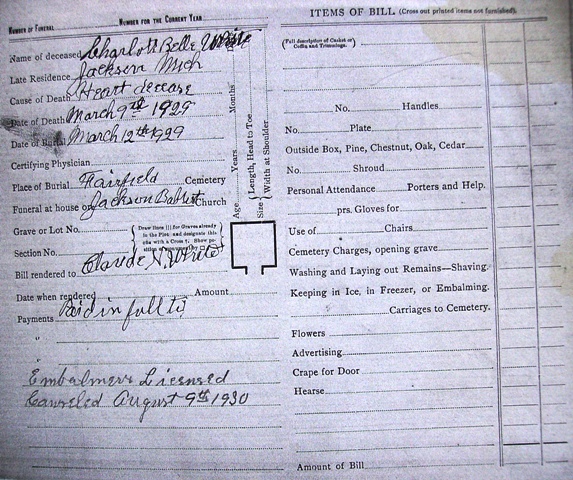 Number of Funeral
Number for the Current Year
Name of deceased Charlott Belle White
Late Residence Jackson Mich
Cause of Death Heart decease
Date of Death March 9th 1929
Date of Burial March 12th 1929
Certifying Physician
Place of Burial Fairfield Cemetery
Funeral at house or Jackson Babtist Church
Grave or Lot No.
Section No.
Draw lines ||| for Graves already in the Plot and designate this one with a Cross †. Show position of monument by □
Bill rendered to Claude N. White
Date when rendered Amount
Payments Paid in full
"
"
Embalmers Licensed
Canseled August 9th 1930
Age Years Months
Size Length, Head to Toe
Width at Shoulder
ITEMS OF BILL. (Cross out printed items not furnished).
(Full description of Casket or Coffin and Trimmings.
No. Handles
No. Plate
Outside Box, Pine, Chestnut, Oak, Cedar
No. Shroud
Personal Attendance Porters and Help.
prs. Gloves for
Use of Chairs
Cemetery Charges, opening grave
Washing and Laying out Remains—Shaving.
Keeping in Ice, in Freezer, or Embalming.
Carriages to Cemetery.
Flowers
Advertising
Crape for Door
Hearse
Amount of Bill